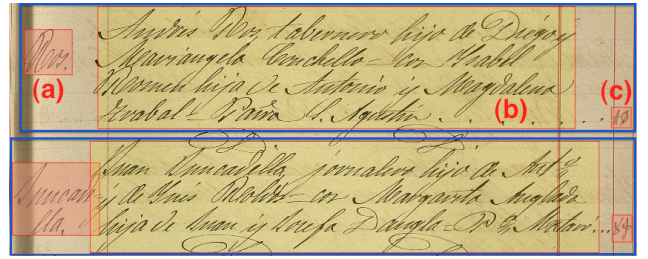 Ros.
(a)
Andrés Ros, tabernero hijo de Diego y
Mariangela Conchello = con Ysabel
Romeu hija de Antonio y Magdalena
= Parra S. Agustin
(b)
(c)
Juncadella.
Juan Juncadella, jornalero hijo de Ant.º
y de Ynés = con Margarita Anglada
hija de Juan y Josefa = P.